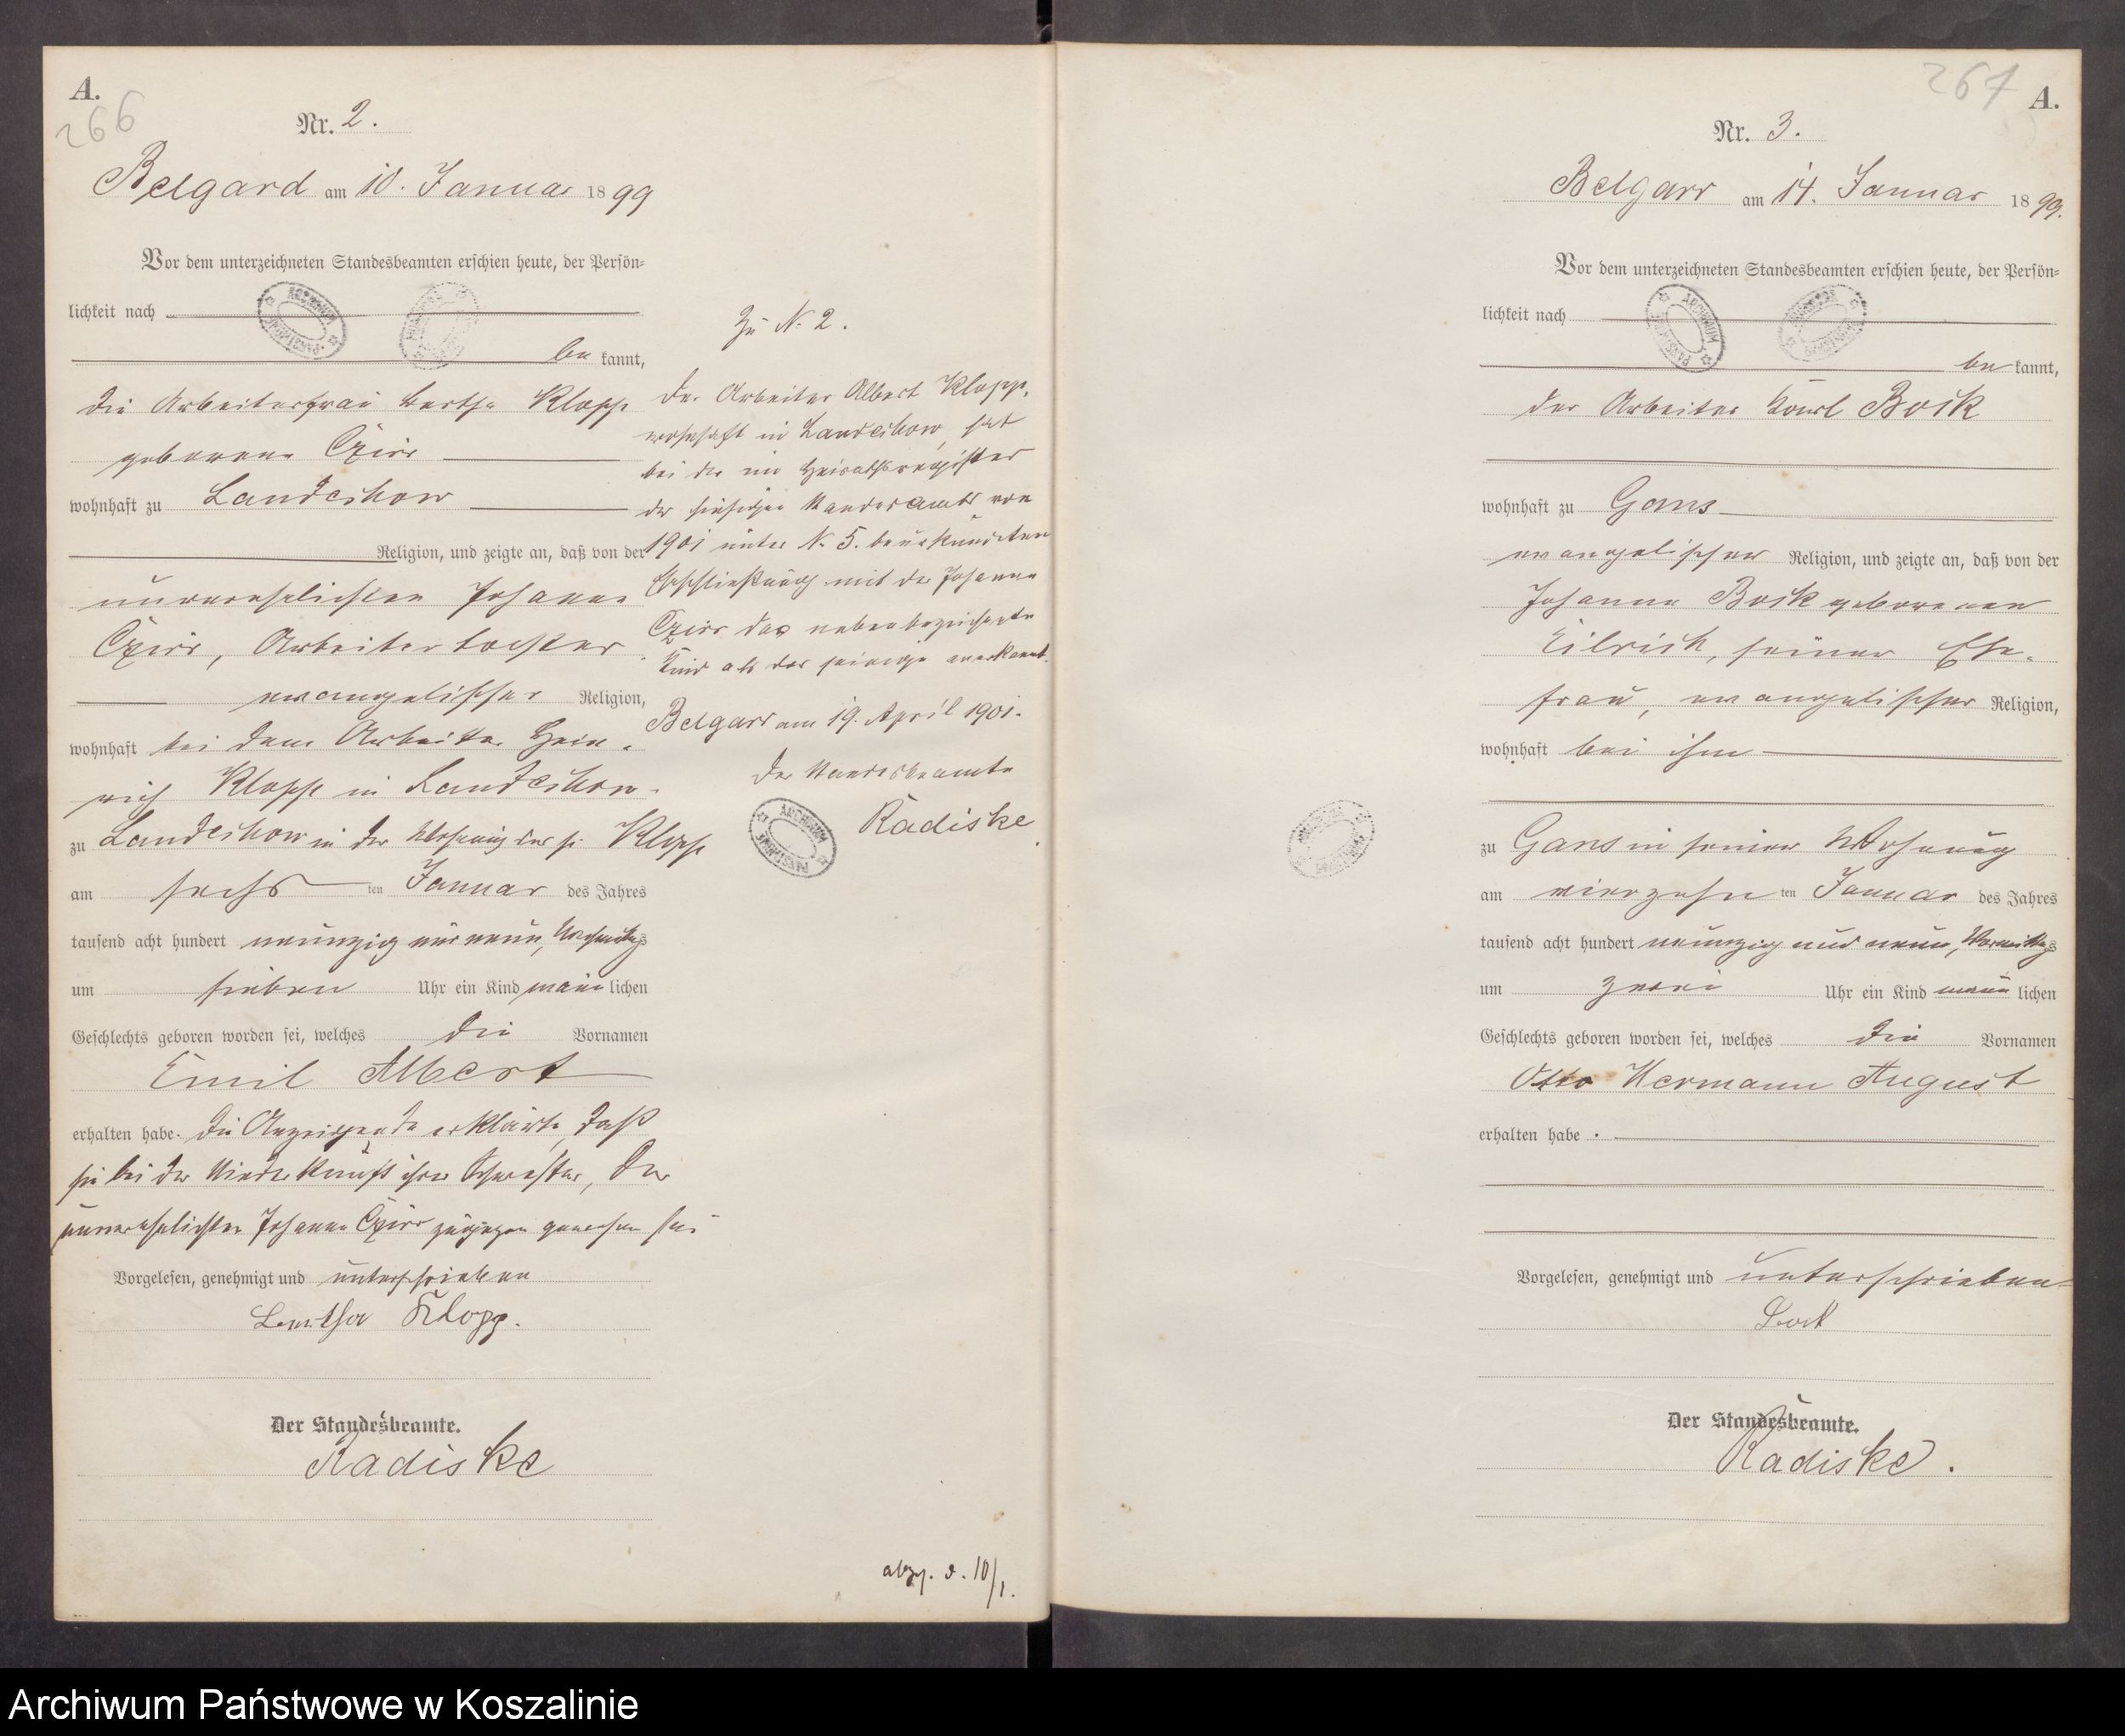 A.
266
Nr. 2.
Belgard am 10. Januar 1899
Vor dem unterzeichneten Standesbeamten erschien heute, der Persön-
lichkeit nach
be kannt,
die Arbeiterfrau Bertha Klopp
geborene Czirr
wohnhaft zu Landechow
Religion, und zeigte an, daß von der
unverehelichten Johanne
Czirr, Arbeitertochter
evangelischer Religion,
wohnhaft bei dem Arbeiter Hein-
rich Klopp in Landechow
zu Landechow in der Wohnung des p. Klopp
am sechsten Januar des Jahres
tausend acht hundert neunzig und neun, Nachmittags
um sieben Uhr ein Kind männlichen
Geschlechts geboren worden sei, welches die Vornamen
Emil Albert
erhalten habe. Die Anzeigende erklärte, daß
sie bei der Niederkunft ihrer Schwester, der
unverehelichten Johanne Czirr zugegen gewesen sei
Vorgelesen, genehmigt und unterschrieben
Bertha Klopp.
Der Standesbeamte.
Radiske
Zu N. 2.
Der Arbeiter Albert Klopp,
wohnhaft in Landechow, hat
bei der im Heirathsregister
des hiesigen Standesamts von
1901 unter N. 5. beurkundeten
Eheschließung mit der Johanne
Czirr das nebenbezeichnete
Kind als das seinige anerkannt.
Belgard am 19. April 1901.
Der Standesbeamte
Radiske
10/1.
267
A.
Nr. 3.
Belgard am 14. Januar 1899.
Vor dem unterzeichneten Standesbeamten erschien heute, der Persön-
lichkeit nach
be kannt,
der Arbeiter Karl Bock
wohnhaft zu Gans
evangelischer Religion, und zeigte an, daß von der
Johanne Bock geborenen
seiner Ehe-
frau, evangelischer Religion,
wohnhaft bei ihm
zu Gans in seiner Wohnung
am vierzehnten Januar des Jahres
tausend acht hundert neunzig und neun, Vormittags
um zwei Uhr ein Kind männlichen
Geschlechts geboren worden sei, welches die Vornamen
Otto Hermann August
erhalten habe.
Vorgelesen, genehmigt und unterschrieben
Bock
Der Standesbeamte.
Radiske.
Archiwum Państwowe w Koszalinie